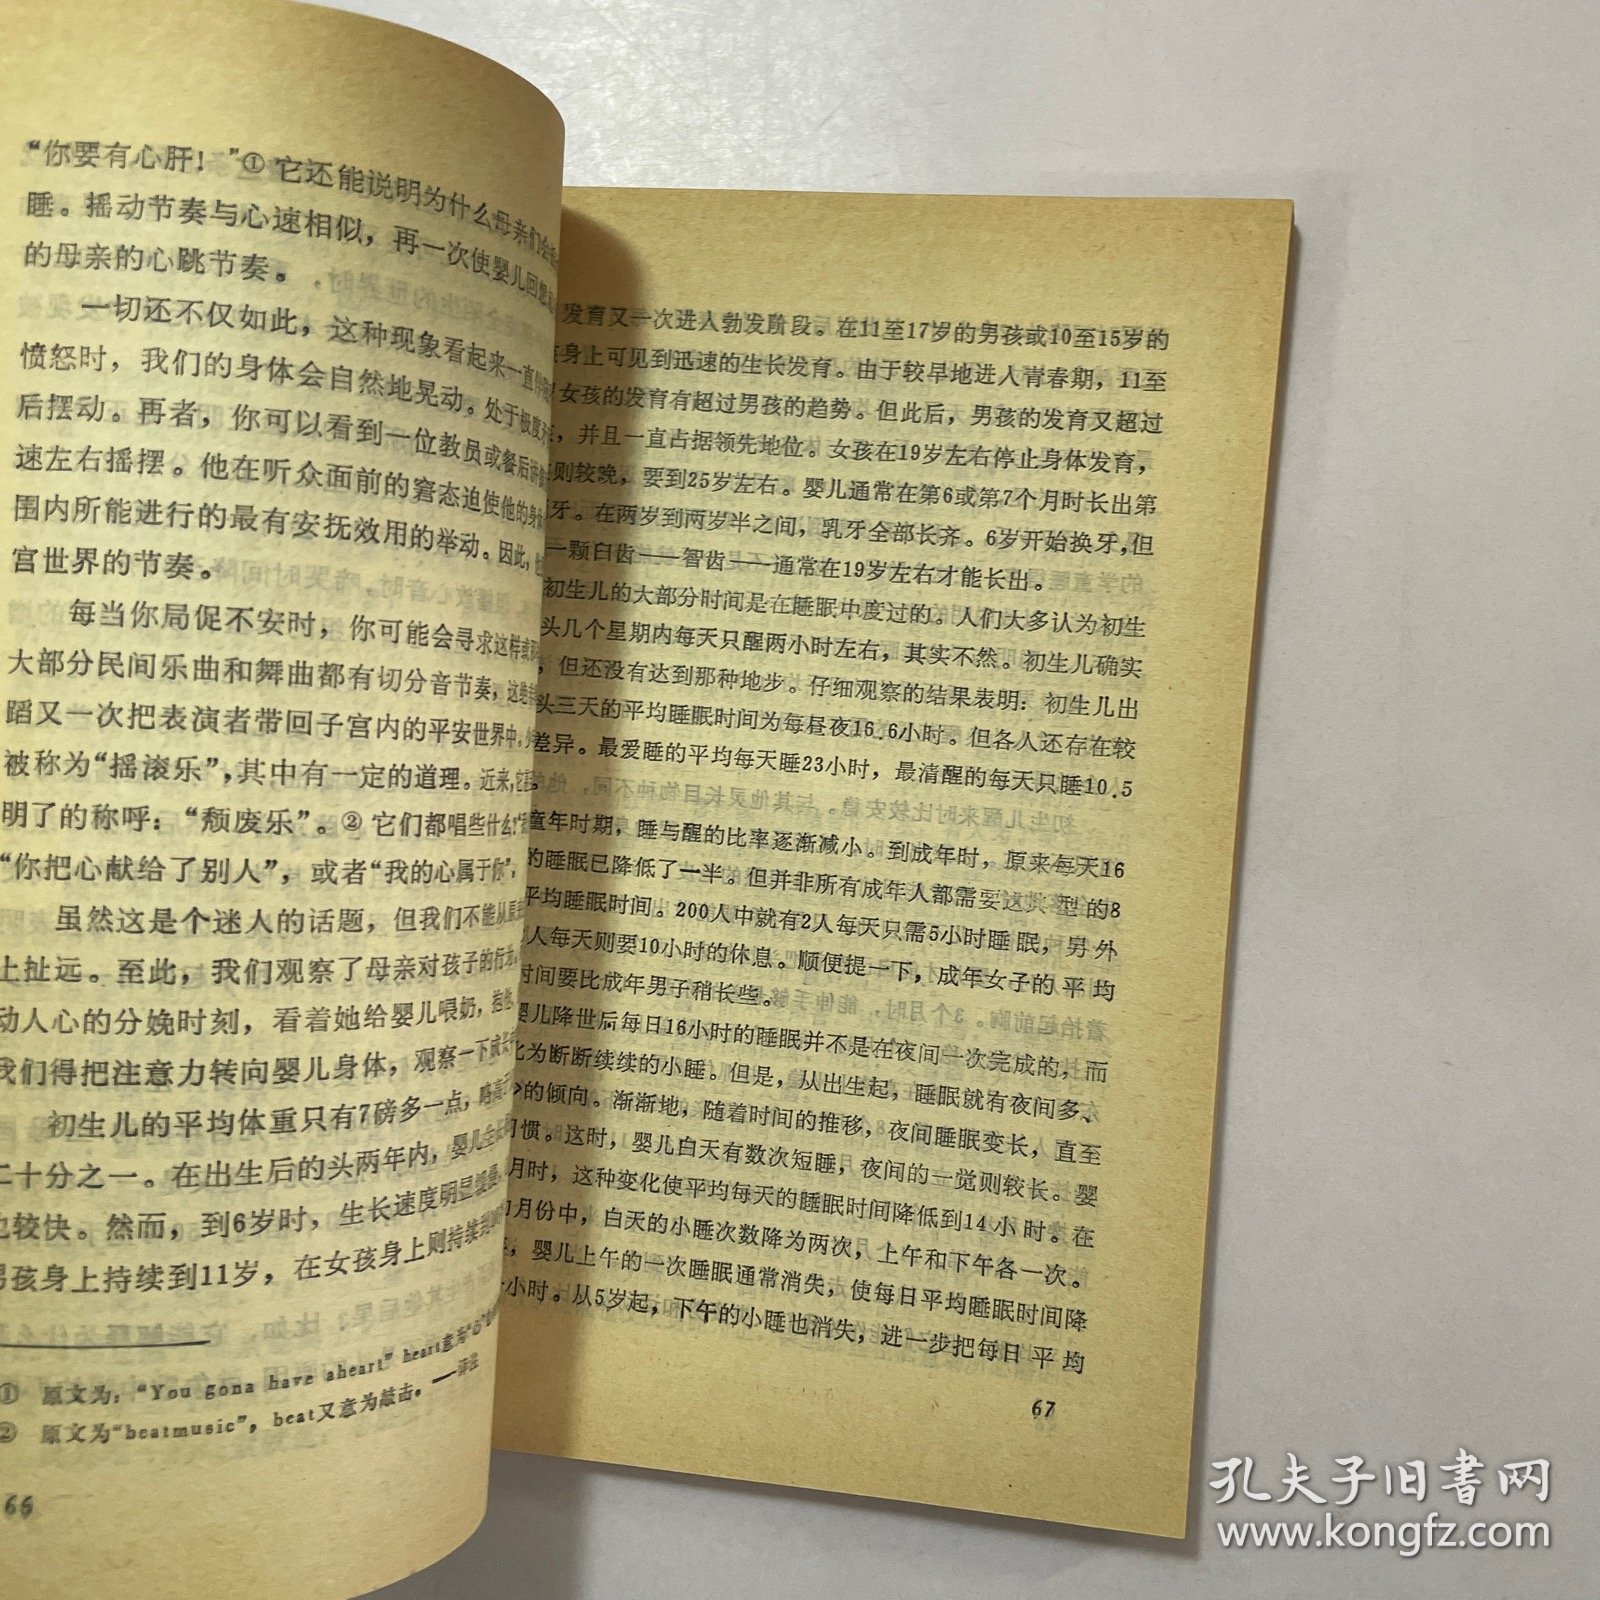 “你要有心肝！”① 它还能说明为什么母亲们会
睡。摇动节奏与心速相似，再一次使婴儿回
的母亲的心跳节奏。
一切还不仅如此，这种现象看起来一直
愤怒时，我们的身体会自然地晃动。处于极度
后摆动。再者，你可以看到一位教员或餐后讲
速左右摇摆。他在听众面前的窘态迫使他的身
围内所能进行的最有安抚效用的举动。因此，
宫世界的节奏。
每当你局促不安时，你可能会寻求这样或
大部分民间乐曲和舞曲都有切分音节奏，这绝
蹈又一次把表演者带回子宫内的平安世界中。
被称为“摇滚乐”，其中有一定的道理。近来，它
明了的称呼：“颓废乐”。② 它们都唱些什么？
“你把心献给了别人”，或者“我的心属于你”，
虽然这是个迷人的话题，但我们不能从
上扯远。至此，我们观察了母亲对孩子的行为，
动人心的分娩时刻，看着她给婴儿喂奶，抱
我们得把注意力转向婴儿身体，观察一下成长
初生儿的平均体重只有7磅多一点，略高
二十分之一。在出生后的头两年内，婴儿
也较快。然而，到6岁时，生长速度明显
男孩身上持续到11岁，在女孩身上则持续到
① 原文为：“You gona have aheart” heart意为“心”
② 原文为“beatmusic”，beat又意为敲击。——译注
66
发育又一次进入勃发阶段。在11至17岁的男孩或10至15岁的
身上可见到迅速的生长发育。由于较早地进入青春期，11至
女孩的发育有超过男孩的趋势。但此后，男孩的发育又超过
，并且一直占据领先地位。女孩在19岁左右停止身体发育，
则较晚，要到25岁左右。婴儿通常在第6或第7个月时长出第
牙。在两岁到两岁半之间，乳牙全部长齐。6岁开始换牙，但
一颗臼齿——智齿——通常在19岁左右才能长出。
初生儿的大部分时间是在睡眠中度过的。人们大多认为初生
头几个星期内每天只醒两小时左右，其实不然。初生儿确实
，但还没有达到那种地步。仔细观察的结果表明：初生儿出
头三天的平均睡眠时间为每昼夜16.6小时。但各人还存在较
差异。最爱睡的平均每天睡23小时，最清醒的每天只睡10.5
童年时期，睡与醒的比率逐渐减小。到成年时，原来每天16
的睡眠已降低了一半。但并非所有成年人都需要这典型的8
平均睡眠时间。200人中就有2人每天只需5小时睡眠，另外
人每天则要10小时的休息。顺便提一下，成年女子的平均
时间要比成年男子稍长些。
婴儿降世后每日16小时的睡眠并不是在夜间一次完成的，而
化为断断续续的小睡。但是，从出生起，睡眠就有夜间多、
的倾向。渐渐地，随着时间的推移，夜间睡眠变长，直至
习惯。这时，婴儿白天有数次短睡，夜间的一觉则较长。婴
月时，这种变化使平均每天的睡眠时间降低到14小时。在
月份中，白天的小睡次数降为两次，上午和下午各一次。
，婴儿上午的一次睡眠通常消失，使每日平均睡眠时间降
小时。从5岁起，下午的小睡也消失，进一步把每日平均
67
孔夫子旧书网
www.kongfz.com